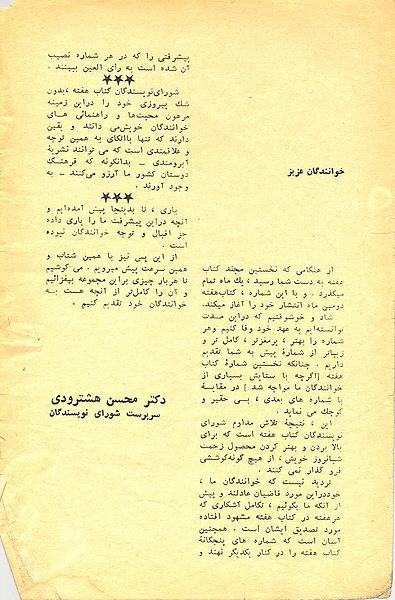 خوانندگان عزیز
از هنگامی که نخستین مجلد کتاب
هفته به دست شما رسید، یك ماه تمام
میگذرد . و با این شماره ، کتاب‌هفته
دومین ماه انتشار خود را آغاز میکند.
شاد و خوشوقتیم که دراین مدت
توانسته‌ایم به عهد خود وفا کنیم وهر
شماره را بهتر ، پرمغزتر ، کامل تر و
زیباتر از شمارهٔ پیش به شما تقدیم
داریم . چنانکه نخستین شمارهٔ کتاب
هفته [اگرچه با ستایش بسیاری از
خوانندگان ما مواجه شد ] در مقایسهٔ
با شماره های بعدی ، بسی حقیر و
کوچك می نماید .
این ، نتیجهٔ تلاش مداوم شورای
نویسندگان کتاب هفته است که برای
بالا بردن و بهتر کردن محصول زحمت
شبانروز خویش، از هیچ گونه‌کوششی
فرو گذار نمی کنند .
تردید نیست که خوانندگان ما ،
خوددراین مورد قاضیان عادلند و پیش
از آنکه ما بگوئیم ، تکامل آشکاری که
هرهفته در کتاب هفته مشهود افتاده
مورد تصدیق ایشان است . همچنین
آسان است که شماره های پنجگانهٔ
کتاب هفته را در کنار یکدیگر نهند و
پیشرفتی را که در هر شماره نصیب
آن شده است به رأی العین ببینند .
★★★
شورای‌نویسندگان کتاب هفته ،بدون
شك پیروزی خود را دراین زمینه
مرهون محبت‌ها و راهنمائی های
خوانندگان خویش‌می دانند و یقین
دارند که تنها باتکای به همین توجه
و علاقمندی است که می توانند نشریهٔ
آبرومندی ــ بدانگونه که فرهنگ
دوستان کشور ما آرزو می‌کنند ــ به
وجود آورند .
★★★
باری ، تا بدینجا پیش آمده‌ایم و
آنچه دراین پیشرفت ما را یاری داده
جز اقبال و توجه خوانندگان نبوده
است .
از این پس نیز با همین شتاب و
همین سرعت پیش میرویم . می کوشیم
تا هربار چیزی براین مجموعه بیفزائیم
و آن را کامل‌تر از آنچه هست به
خوانندگان خود تقدیم کنیم .
دکتر محسن هشترودی
سرپرست شورای نویسندگان